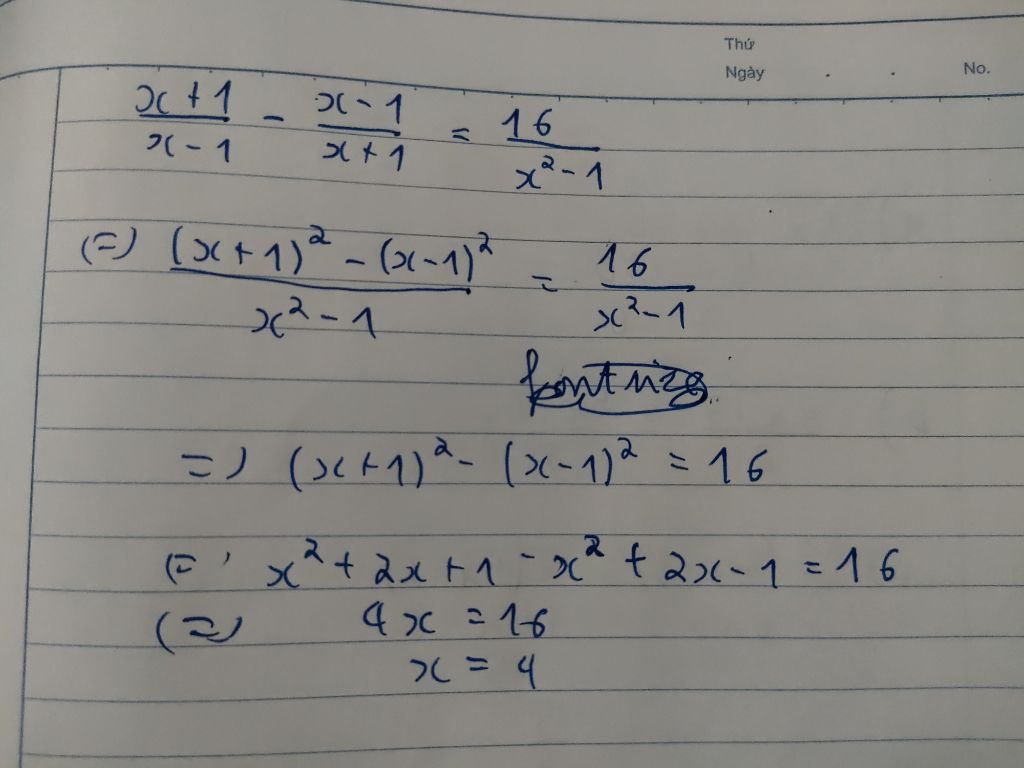 Thứ
Ngày . . No.
(x+1)/(x-1) - (x-1)/(x+1) = 16/(x²-1)
(=) ((x+1)² - (x-1)²)/(x²-1) = 16/(x²-1)
=) (x+1)² - (x-1)² = 16
(=' x² + 2x + 1 - x² + 2x - 1 = 16
(=) 4x = 16
x = 4